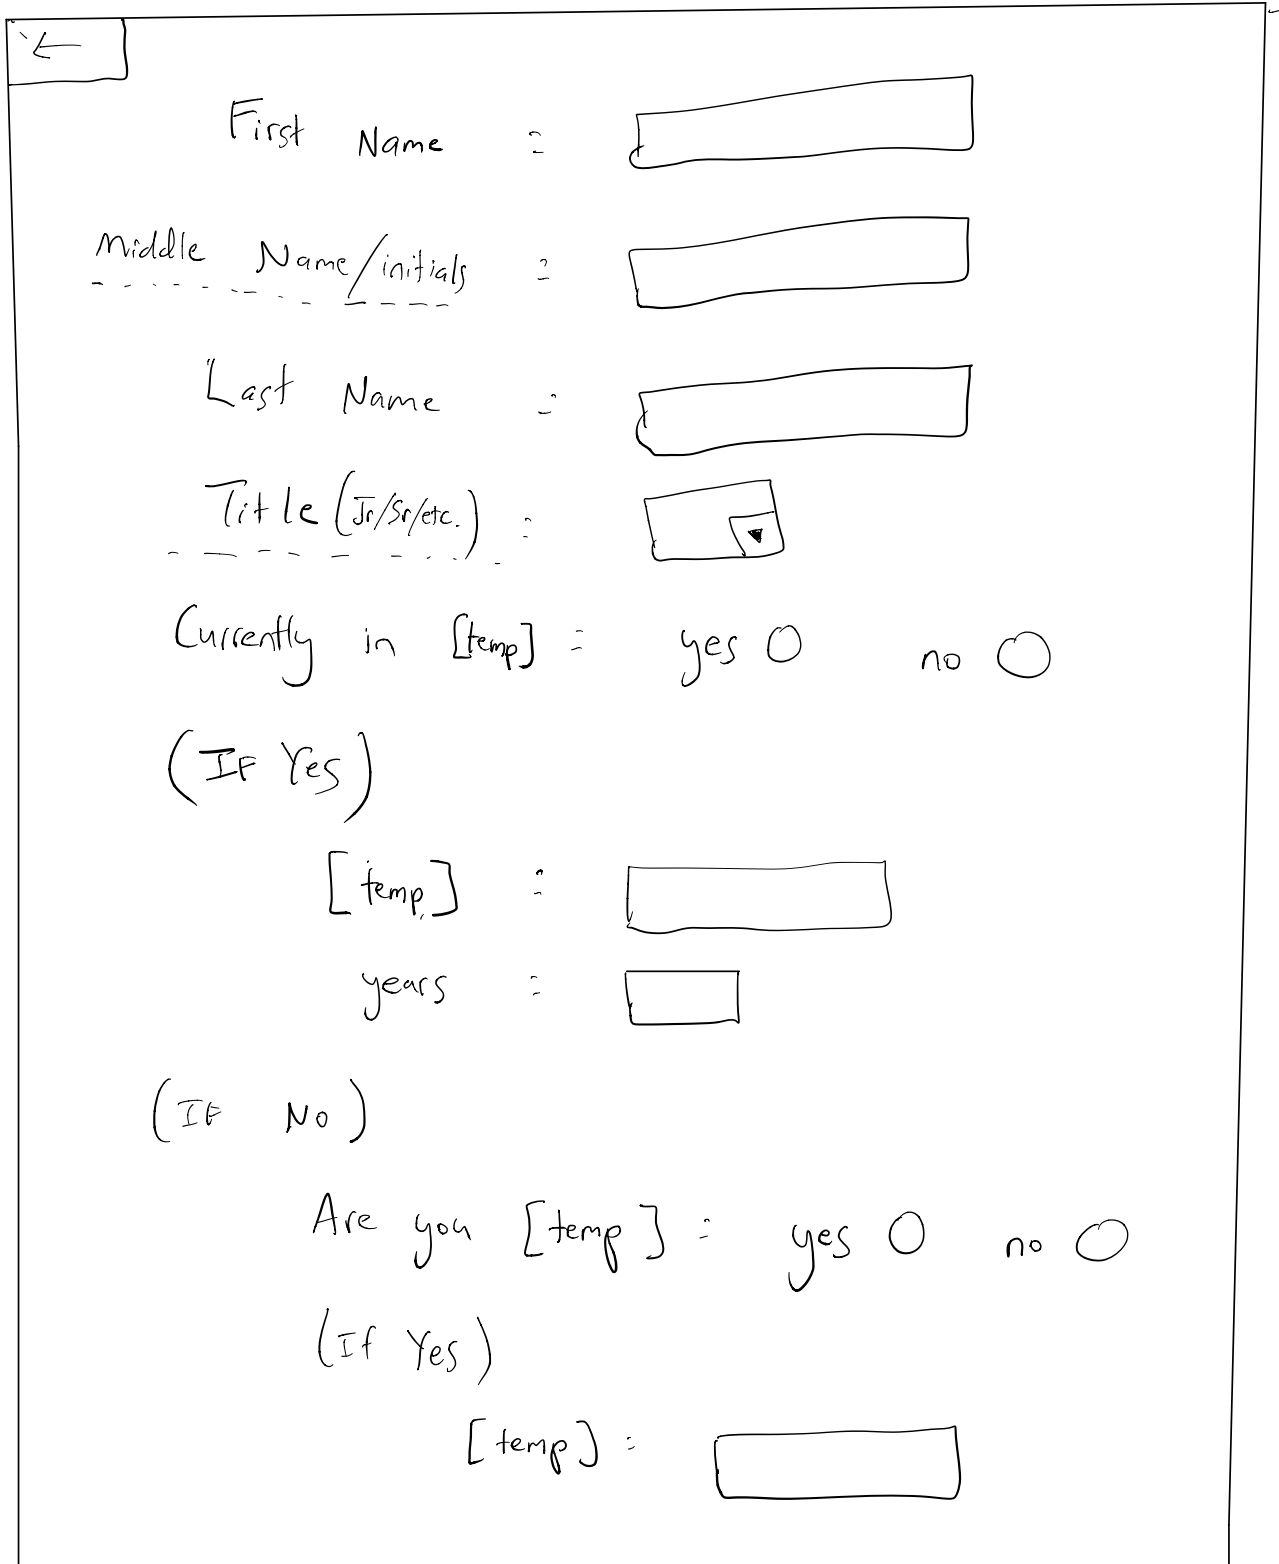 First Name :
Middle Name/initials :
Last Name :
Title (Jr/Sr/etc.) :
Currently in [temp] : yes no
(IF Yes)
[temp] :
years :
(IF No)
Are you [temp] : yes no
(If Yes)
[temp] :